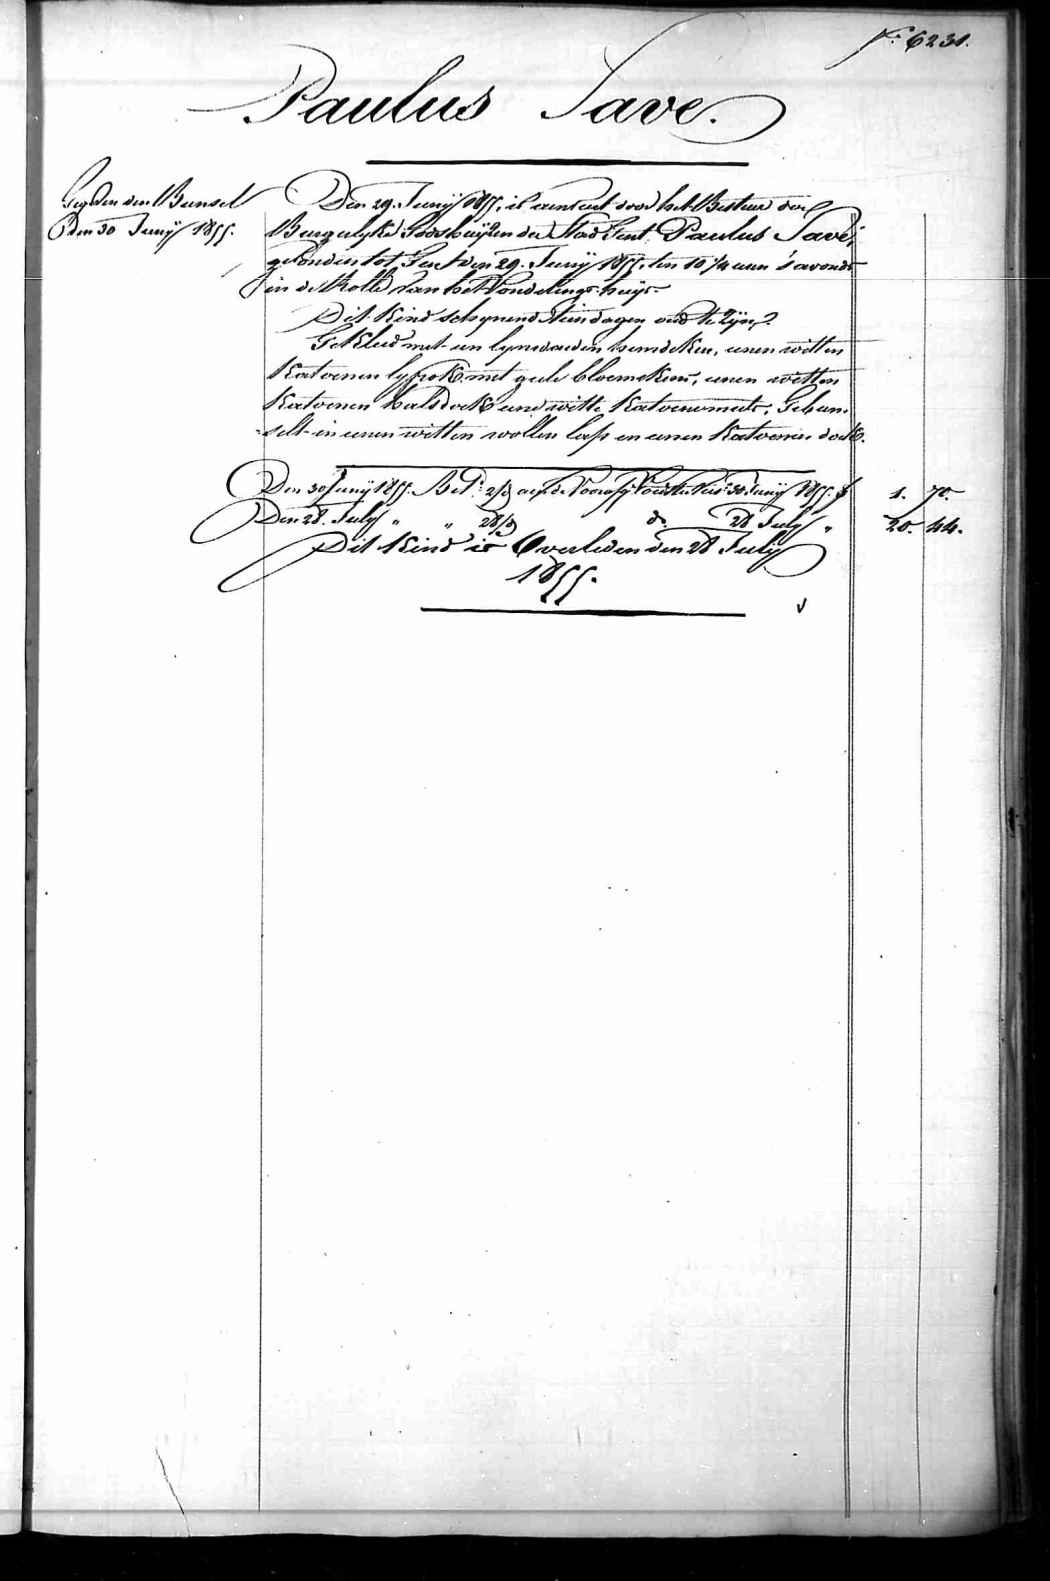 fo. 6231.
Paulus Save.
Den 29. Junÿ 1855, is aenveert door het Bestuur der
Burgelyke Godshuÿzen der Stad Gent, Paulus Save,
gevonden tot Gent den 29. Junÿ 1855, ten 10 1/4 uren 's avonds
in de Rolle van het Vondelings-huÿs.
Dit Kind schynend dagen oud te Zÿn,
Gekleed met een lynwaeden hemdeken, eenen witten
Katoenen lyfrok met geele bloemekens, eenen witten
Katoenen halsdoek eene witte Katoene muts, Gebun-
selt in eenen witten wollen lap en eenen Katoenen doek.
den Bunsel
den 30 Junÿ 1855.
Den 30 Junÿ 1855. 2/3 30 Junÿ 1855. f 1. 70.
Den 28. July " " 28/3 do. 28 July " 20. 44.
Dit Kind is Overleden den 28 July
1855.